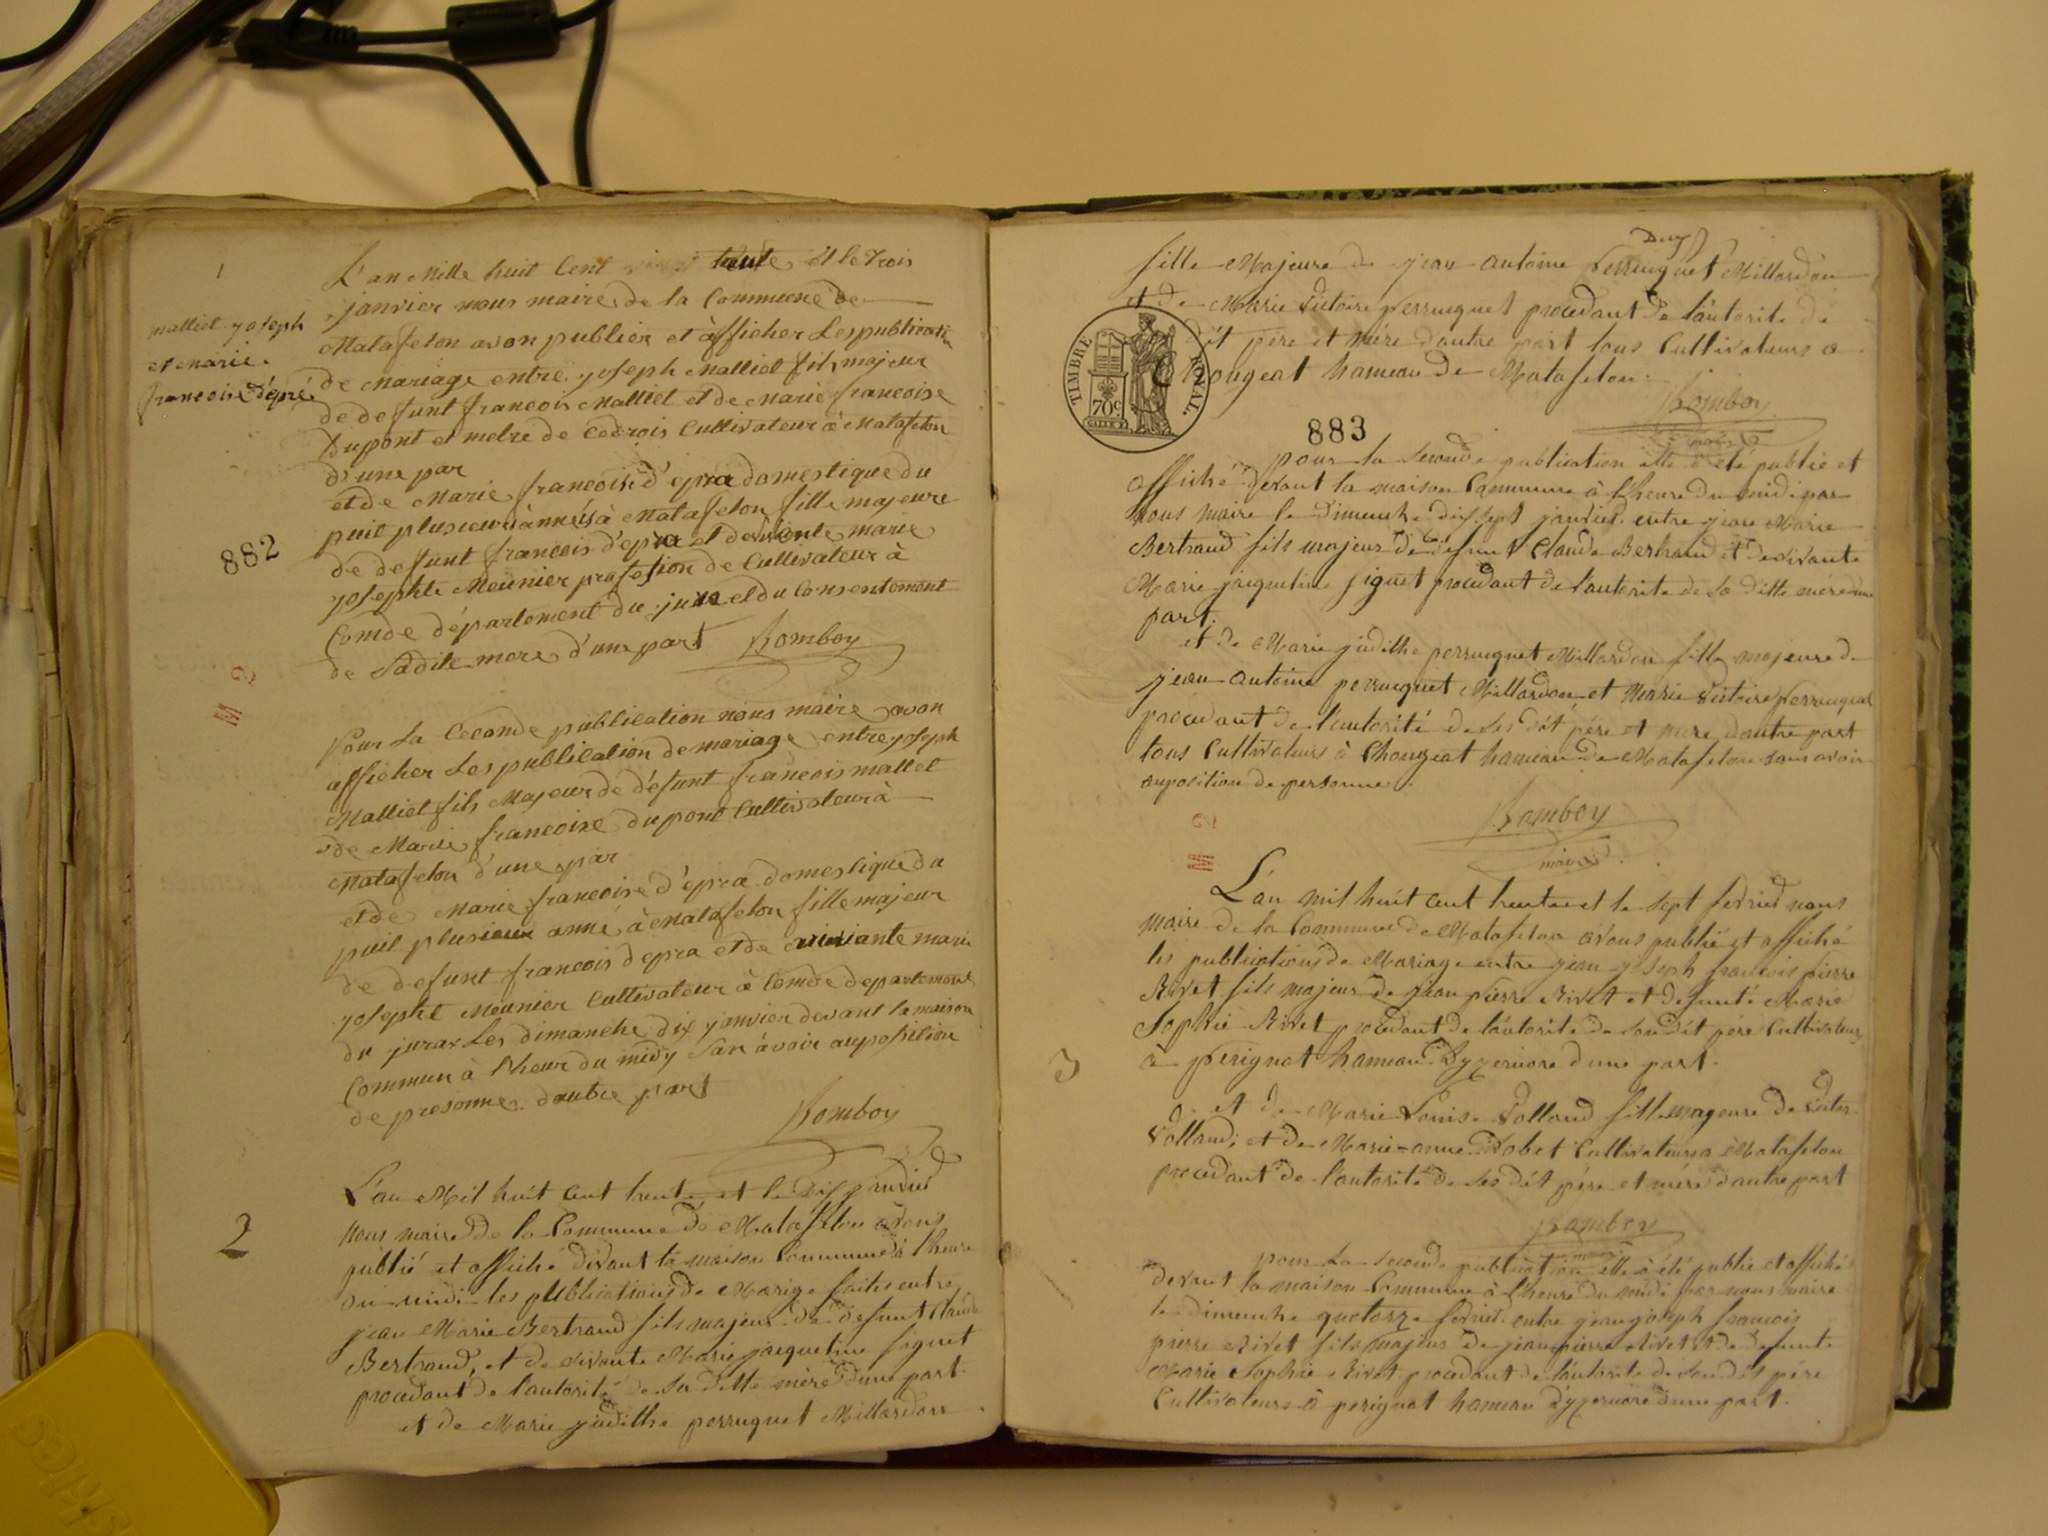 1
L'an Mille huit Cent trente et le trois
janvier nous maire de la Commune de
malliet joseph
et marie
francoise d'épré
Matafelon avon publier et àfficher Les publication
de Mariage entre joseph Malliet fils majeur
de defunt francois Malliet et de Marie francoise
Dupont et metre de Cedrois Cultivateur à Matafelon
d'une par
et de Marie francoise d'epra domestique du
puit plusieursànnéis à Matafelon fille majeure
882
de defunt francois d'epra et de vivente marie
josephte Meunier profesion de Cultivateur à
Comde département du jura et du Consentement
de Sa dite mere d'une part Romboy
M 2
Pour La Ceconde publication nous maire avon
afficher Les publication de mariage entre joseph
Malliet fils Majeur de défunt francois mallet
de Marie francoise dupont Cultivateur à
Matafelon d'une par
et de Marie francoise d'epra domestique du
puit plusieur anné à Matafelon fille majeur
de defunt francois depra et de vivante marie
josephte Meunier Cultivateur à Comde departement
du jurax Les dimanche dix janvier devant la maison
Commun à l'heur du midy San àvoir auposition
de presonne. dautre part
Romboy
L'an Mil huit Cent trente et le Dix janvier
2
Nous maire de la Commune de Matafelon avons
publié et affiché dévant la maison Commune à l'heure
du midi les publications de Marige faites entre
jean Marie Bertrand fils majeur de defunt Claude
Bertrand, et de vivante Marie jaqueline figuet
procédant de l'autorité de Sa ditte mère d'une part
et de Marie judithe perruquet Millardon
Deux
fille Majeure de jean antoine perruquet Millardon
et de Marie Victoire perruquet procedant de l'autorité de
dit père et mère d'autre part tous Cultivateurs a
Chougeat hameau de Matafelon.
TIMBRE ROYAL.
70c
Romboy
maire
883
pour la Seconde publication elle a été publié et
affiché dévant la maison Commune à l'heure du midi par
nous maire le Dimenche dix sept janvier entre jean Marie
Bertrand fils majeur de défunt Claude Bertrand et de vivante
Marie jaqueline figuet procedant de l'autorité de Sa ditte mère d'une
part.
et de Marie judithe perruquet Millardon fille majeure de
jean antoine perruquet Millardon et Marie Victoire perruquet
procedant de l'autorité de Ses dit père et mère d'autre part
tous Cultivateurs à Chougeat hameau de Matafelon sans avoir
auposition de personne.
Romboy
maire
M 2
L'an mil huit cent trente et le sept fevrier nous
maire de la Commune de Matafelon avons publié et affiché
les publications de Mariage entre jean joseph francois pierre
Rivet fils majeur de jean pierre Rivet et defunte Marie
Sophie Rivet procedant de l'autorité de son dit père Cultivateurs
3
à perignat hameau d'yzernore d'une part.
et de Marie Louise Volland fille mageure de Victor
Volland, et de Marie-anne Robet Cultivateurs a Matafelon
procedant de l'autorité de Ses dit père et mère d'autre part
Romboy
maire
pour La Seconde publication elle a été publié et affiché
devant la maison Commune à l'heure du midi par nous maire
le dimenche quatorze fevrier entre jean joseph francois
pierre Rivet fils majeur de jean pierre Rivet et de defunte
Marie Sophie Rivet procedant de l'autorité de son dit père
Cultivateurs à perignat hameau d'yzernore d'une part.